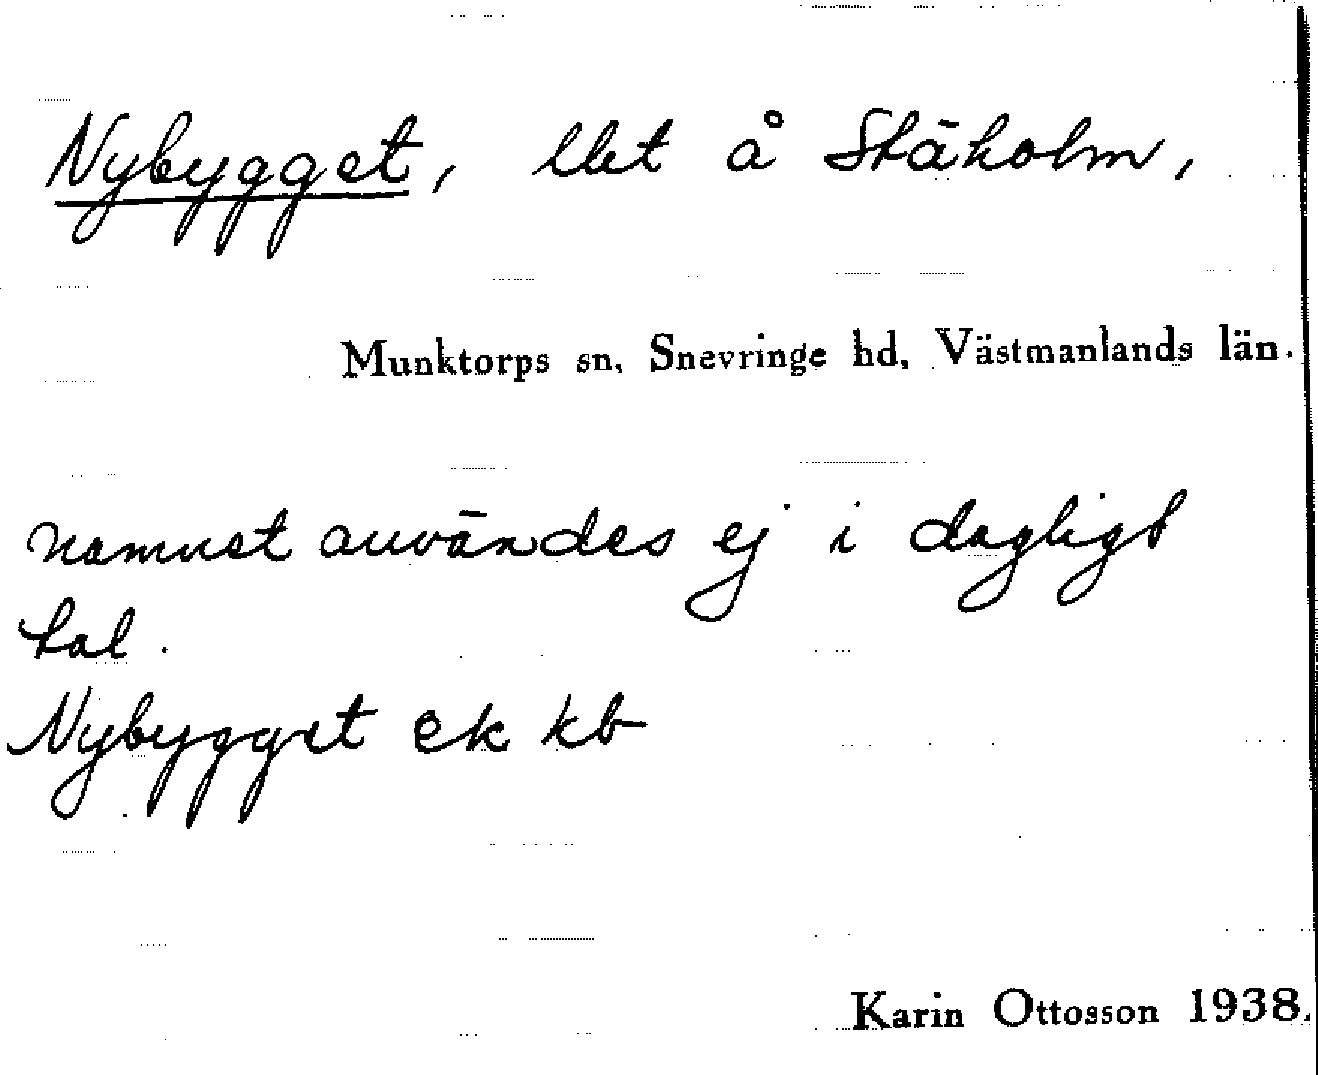 Nybygget, llet å Stäholm,
Munktorps sn, Snevringe hd, Västmanlands län.
namnet användes ej i dagligt
tal.
Nybygget ek kb
Karin Ottosson 1938.